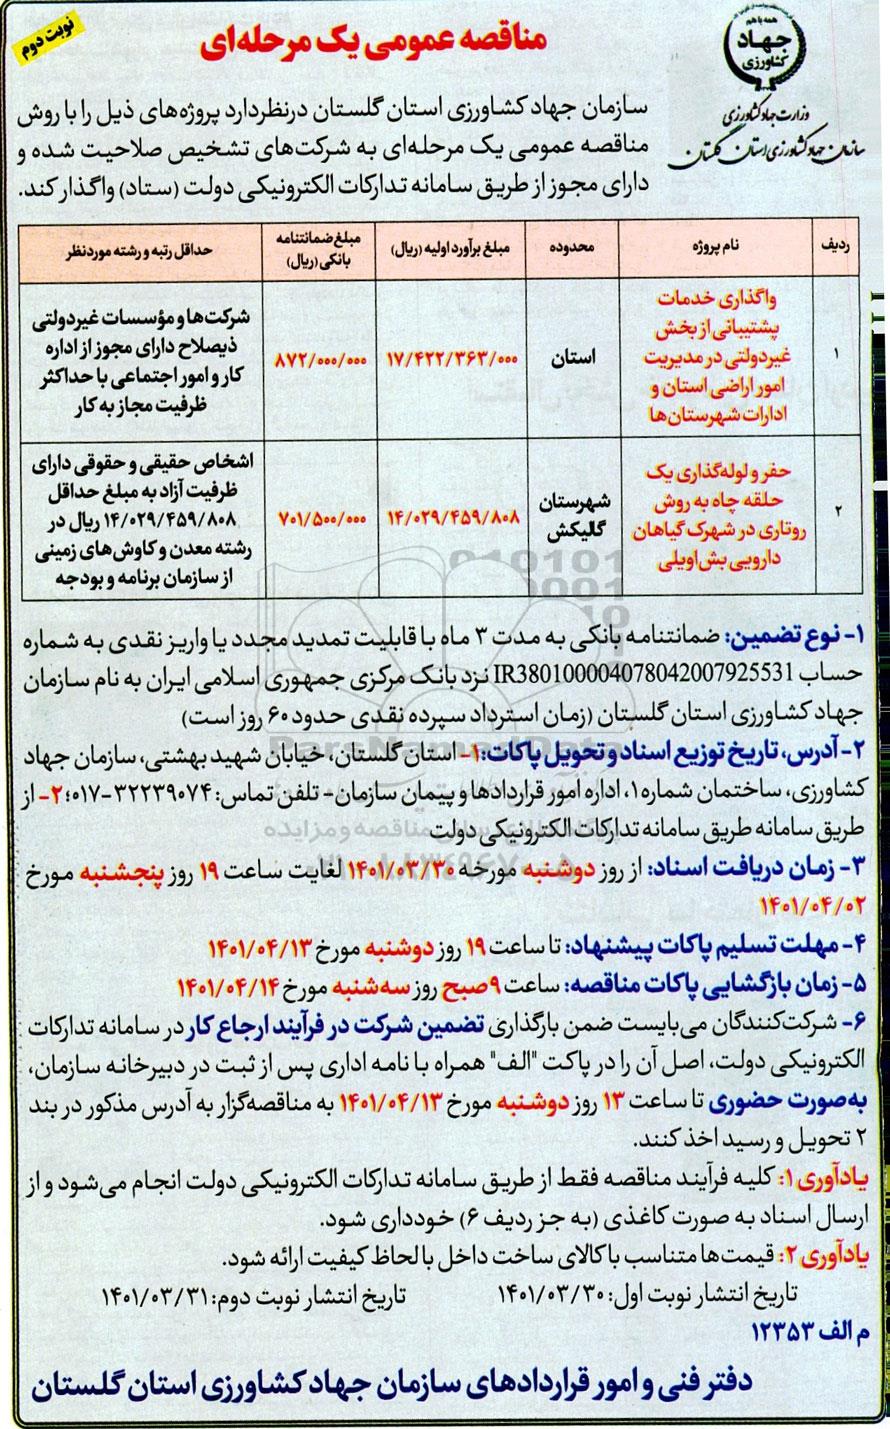 نوبت دوم
مناقصه عمومی یک مرحله‌ای
همه با هم
جهاد
کشاورزی
وزارت جهاد کشاورزی
سازمان جهاد کشاورزی استان گلستان
سازمان جهاد کشاورزی استان گلستان درنظردارد پروژه‌های ذیل را با روش
مناقصه عمومی یک مرحله‌ای به شرکت‌های تشخیص صلاحیت شده و
دارای مجوز از طریق سامانه تدارکات الکترونیکی دولت (ستاد) واگذار کند.
ردیف | نام پروژه | محدوده | مبلغ برآورد اولیه (ریال) | مبلغ ضمانتنامه بانکی (ریال) | حداقل رتبه و رشته موردنظر
۱
واگذاری خدمات
پشتیبانی از بخش
غیردولتی در مدیریت
امور اراضی استان و
ادارات شهرستان‌ها
استان
۱۷/۴۲۲/۳۶۳/۰۰۰
۸۷۲/۰۰۰/۰۰۰
شرکت‌ها و مؤسسات غیردولتی
ذیصلاح دارای مجوز از اداره
کار و امور اجتماعی با حداکثر
ظرفیت مجاز به کار
۲
حفر و لوله‌گذاری یک
حلقه چاه به روش
روتاری در شهرک گیاهان
دارویی بش‌اویلی
شهرستان
گالیکش
۱۴/۰۲۹/۴۵۹/۸۰۸
۷۰۱/۵۰۰/۰۰۰
اشخاص حقیقی و حقوقی دارای
ظرفیت آزاد به مبلغ حداقل
۱۴/۰۲۹/۴۵۹/۸۰۸ ریال در
رشته معدن و کاوش‌های زمینی
از سازمان برنامه و بودجه
۱- نوع تضمین: ضمانتنامه بانکی به مدت ۳ ماه با قابلیت تمدید مجدد یا واریز نقدی به شماره
حساب IR380100004078042007925531 نزد بانک مرکزی جمهوری اسلامی ایران به نام سازمان
جهاد کشاورزی استان گلستان (زمان استرداد سپرده نقدی حدود ۶۰ روز است)
۲- آدرس، تاریخ توزیع اسناد و تحویل پاکات: ۱- استان گلستان، خیابان شهید بهشتی، سازمان جهاد
کشاورزی، ساختمان شماره۱، اداره امور قراردادها و پیمان سازمان- تلفن تماس: ۳۲۲۳۹۰۷۴-۰۱۷؛ ۲- از
طریق سامانه طریق سامانه تدارکات الکترونیکی دولت
۳- زمان دریافت اسناد: از روز دوشنبه مورخه ۱۴۰۱/۰۳/۳۰ لغایت ساعت ۱۹ روز پنجشنبه مورخ
۱۴۰۱/۰۴/۰۲
۴- مهلت تسلیم پاکات پیشنهاد: تا ساعت ۱۹ روز دوشنبه مورخ ۱۴۰۱/۰۴/۱۳
۵- زمان بازگشایی پاکات مناقصه: ساعت ۹ صبح روز سه‌شنبه مورخ ۱۴۰۱/۰۴/۱۴
۶- شرکت‌کنندگان می‌بایست ضمن بارگذاری تضمین شرکت در فرآیند ارجاع کار در سامانه تدارکات
الکترونیکی دولت، اصل آن را در پاکت "الف" همراه با نامه اداری پس از ثبت در دبیرخانه سازمان،
به‌صورت حضوری تا ساعت ۱۳ روز دوشنبه مورخ ۱۴۰۱/۰۴/۱۳ به مناقصه‌گزار به آدرس مذکور در بند
۲ تحویل و رسید اخذ کنند.
یادآوری ۱: کلیه فرآیند مناقصه فقط از طریق سامانه تدارکات الکترونیکی دولت انجام می‌شود و از
ارسال اسناد به صورت کاغذی (به جز ردیف ۶) خودداری شود.
یادآوری ۲: قیمت‌ها متناسب با کالای ساخت داخل با لحاظ کیفیت ارائه شود.
تاریخ انتشار نوبت اول: ۱۴۰۱/۰۳/۳۰ تاریخ انتشار نوبت دوم: ۱۴۰۱/۰۳/۳۱
م الف ۱۲۳۵۳
دفتر فنی و امور قراردادهای سازمان جهاد کشاورزی استان گلستان